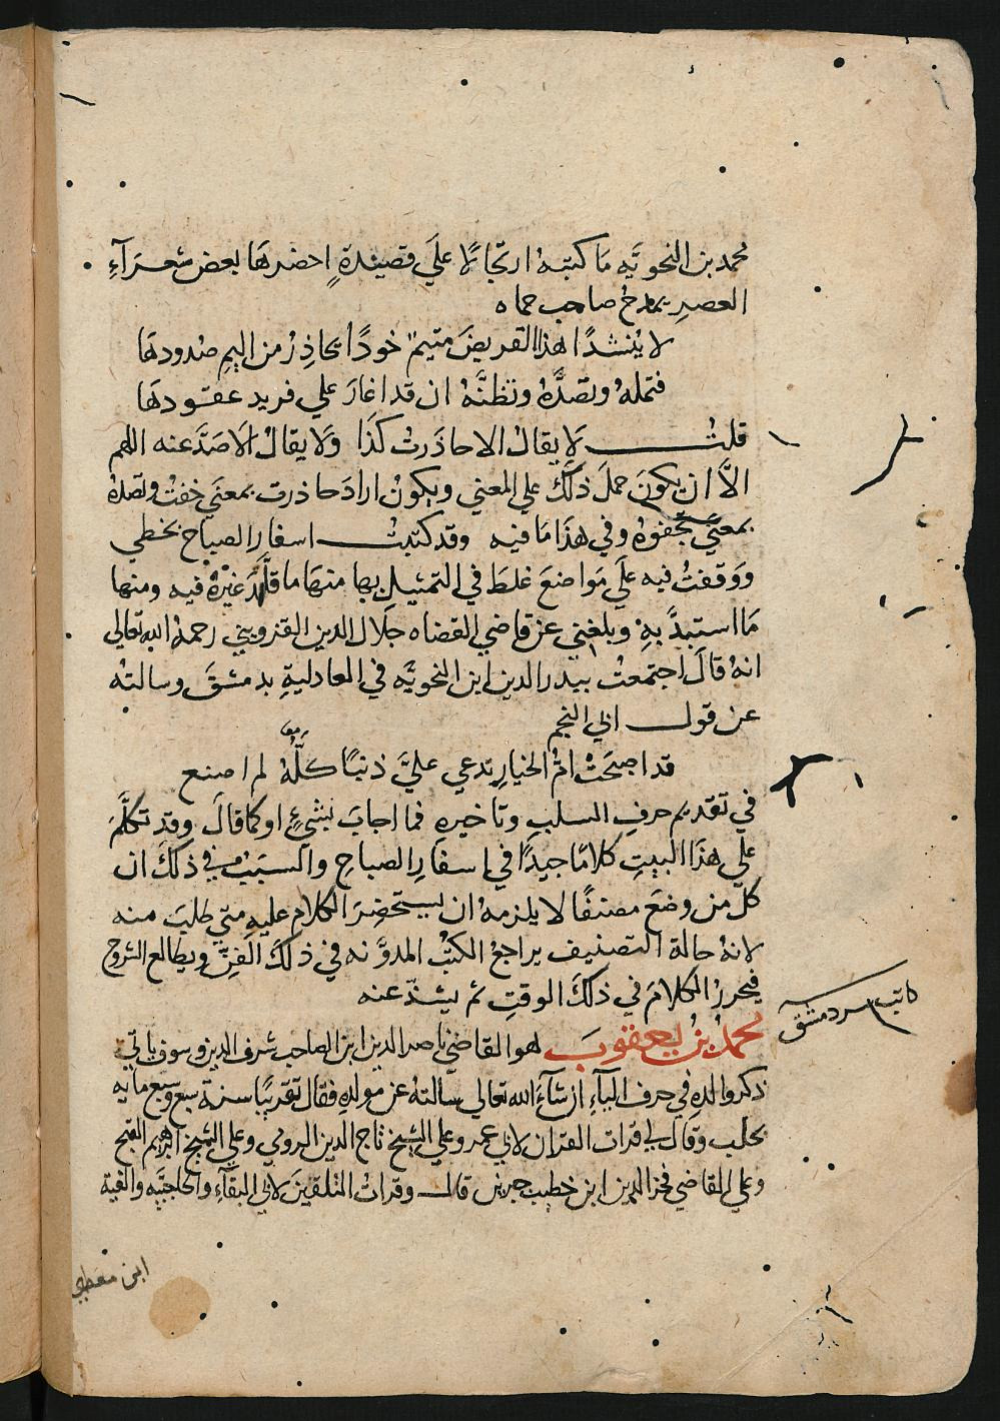 محمد بن النحويَّه مَا كتبَهُ ارتجَالًا علَي قصيدَةٍ احضرهَا بعض شعَرَآءِ
العصرِ يمدحُ صاحب حماه
لا يُنشدًا هذا القريضَ متيمٌ خودًا يحاذِرُ من اليمِ صُدودهَا
فتملهُ وتصدُّهُ وتظنَّهُ ان قد اغارَ علي فريد عقودهَا
قلتُ لا يقالُ الا حاذَرتُ كذَا ولَا يقالُ الَا صَدَّ عنه اللهم
الَّا ان يكونَ حملَ ذلكَ علي المعني ويكونُ ارادَ حاذرت بمعنَي خفتُ وتصدهُ
بمعنَي تجفوهُ وفي هذَا مَا فيه وقد كتبتُ اسفار الصباح بخطي
ووَقفتُ فيه علَي مَواضعَ غلطَ في التمثيلِ بها منهَا ما قلَّدَ غيْرَهُ فيه ومنها
مَا استبدَّ بهِ وبلغني عن قاضي القضاه جلَال الدين القزويني رحمهُ الله تعالي
انهُ قالَ اجتمعتُ ببدر الدين ابن النحويَّه في العادليةِ بدمشقَ وسالتهُ
عن قول ابي النجم
قد اصبحَتْ امُّ الخيارِ تدعي عليَّ ذنبًا كلُّهُ لم اصنع
في تقديم حرفِ السلبِ وتاخيره فما اجابَ بشيءٍ او كما قالَ وقد تكلَّمَ
علي هذَا البيتِ كلامًا جيدًا في اسفارِ الصباحِ والسبَبُ في ذلكَ ان
كلّ من وضعَ مصنفًا لا يلزمهُ ان يستحضِرَ الكلامَ عليهِ متي طلبَ منه
لانهُ حالة التصنيف يراجعُ الكتُبَ المدوَّنه في ذلكَ الفنّ ويطالع الشروح
فيحررُ الكلامَ في ذلكَ الوقتِ ثم يشذّ عنه
كاتب سر دمشق
محمدُ بنُ يعقوبَ هو القاضي ناصر الدين ابن الصاحب شرف الدين وسوف ياتي
ذكر والدهِ في حرف اليآءِ ان شآءَ الله تعالي سالتهُ عن مولدهِ فقال تقريبًا سنة سبع وسبع مايه
بحلب وقال لي قرات القران لابي عمرو علي الشيخ تاج الدين الرومي وعلي الشيخ ابرهيم الفتح
وعلي القاضي فخر الدين ابن خطيب جبرين قال وقراتُ التلقينَ لابي البقآءِ والحاجبيَّه والفية
ابن معطي